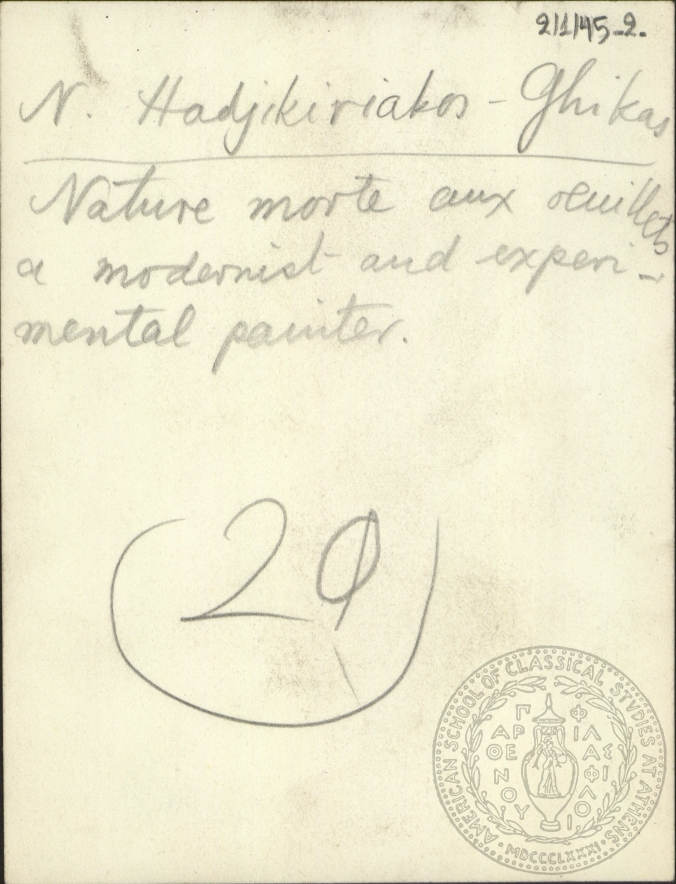 2/1/45-2.
N. Hadjikiriakos - Ghikas
Nature morte aux oeuillets
a modernist and experi-
mental painter.
AMERICAN SCHOOL OF CLASSICAL STUDIES AT ATHENS
ΠΑΡΘΕΝΟΥ ΦΙΛΑΣ ΦΙΛΟΙ
MDCCCLXXXI